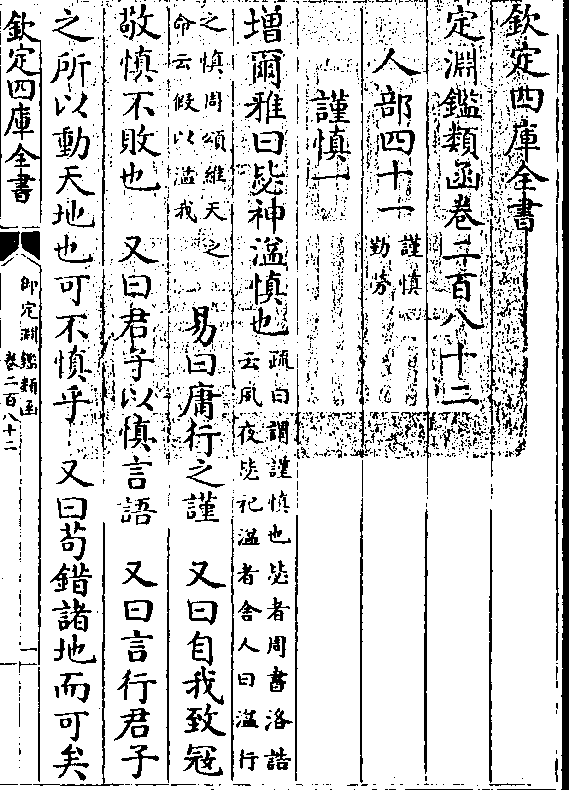 欽定四庫全書
定淵鑑類函卷二百八十二
人部四十一 謹慎
勤勞
謹慎一
增爾雅曰毖神溢慎也 疏曰謂謹慎也毖者周書洛誥
云夙夜毖祀溢者舍人曰溢行
之慎周頌維天之
命云假以溢我 易曰庸行之謹 又曰自我致冦
敬慎不敗也 又曰君子以慎言語 又曰言行君子
之所以動天地也可不慎乎 又曰苟錯諸地而可矣
欽定四庫全書
御定淵鑑類函
卷二百八十二
一